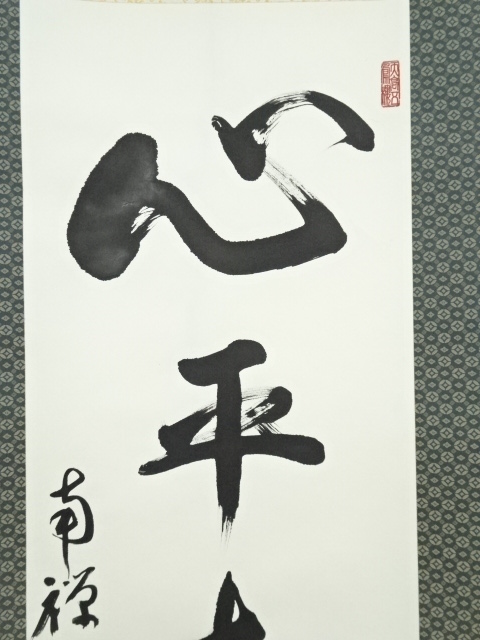 心平
南禅